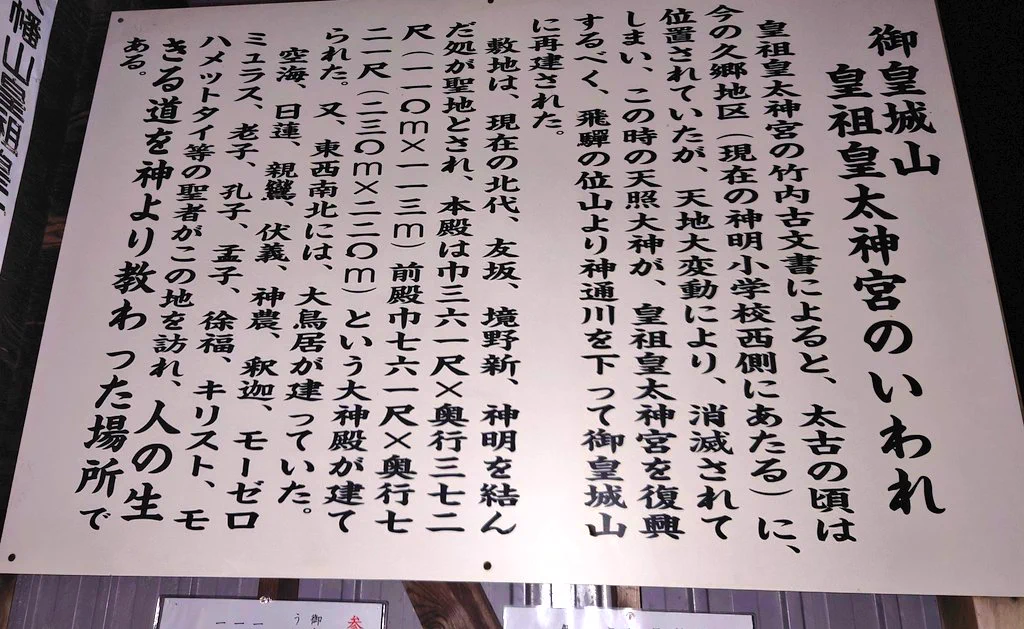 御皇城山
皇祖皇太神宮のいわれ
皇祖皇太神宮の竹内古文書によると、太古の頃は
今の久郷地区（現在の神明小学校西側にあたる）に、
位置されていたが、天地大変動により、消滅されて
しまい、この時の天照大神が、皇祖皇太神宮を復興
するべく、飛驒の位山より神通川を下って御皇城山
に再建された。
敷地は、現在の北代、友坂、境野新、神明を結ん
だ処が聖地とされ、本殿は巾三六一尺×奥行三七二
尺（一一〇m×一一三m）前殿巾七六一尺×奥行七
二一尺（二三〇m×二二〇m）という大神殿が建て
られた。又、東西南北には、大鳥居が建っていた。
空海、日蓮、親鸞、伏義、神農、釈迦、モーゼロ
ミュラス、老子、孔子、孟子、徐福、キリスト、モ
ハメットタイ等の聖者がこの地を訪れ、人の生
きる道を神より教わった場所で
ある。
幡山皇祖皇
参
御
う
一一一